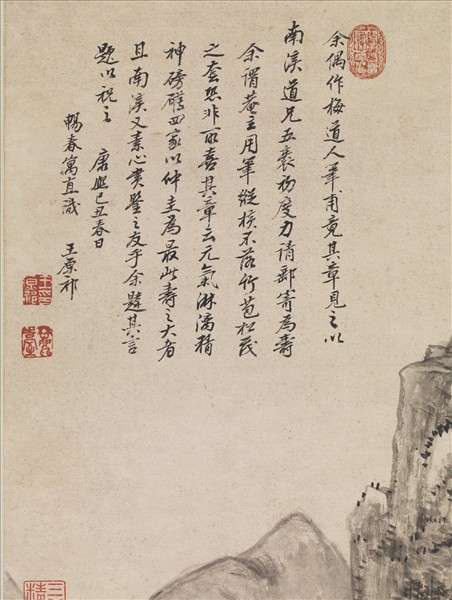 余偶作梅道人筆甫竟其章見之以
南溪道兄五袠初度力請郵寄為壽
余謂菴主用筆縱橫不落竹苞松茂
之套恐非所喜其章云元氣淋漓精
神磅礴四家以仲圭為最此壽之大者
且南溪又素心賞鑒之友乎余韙其言
題以祝之 康熙己丑春日
暢春寓直識 王原祁
三
精